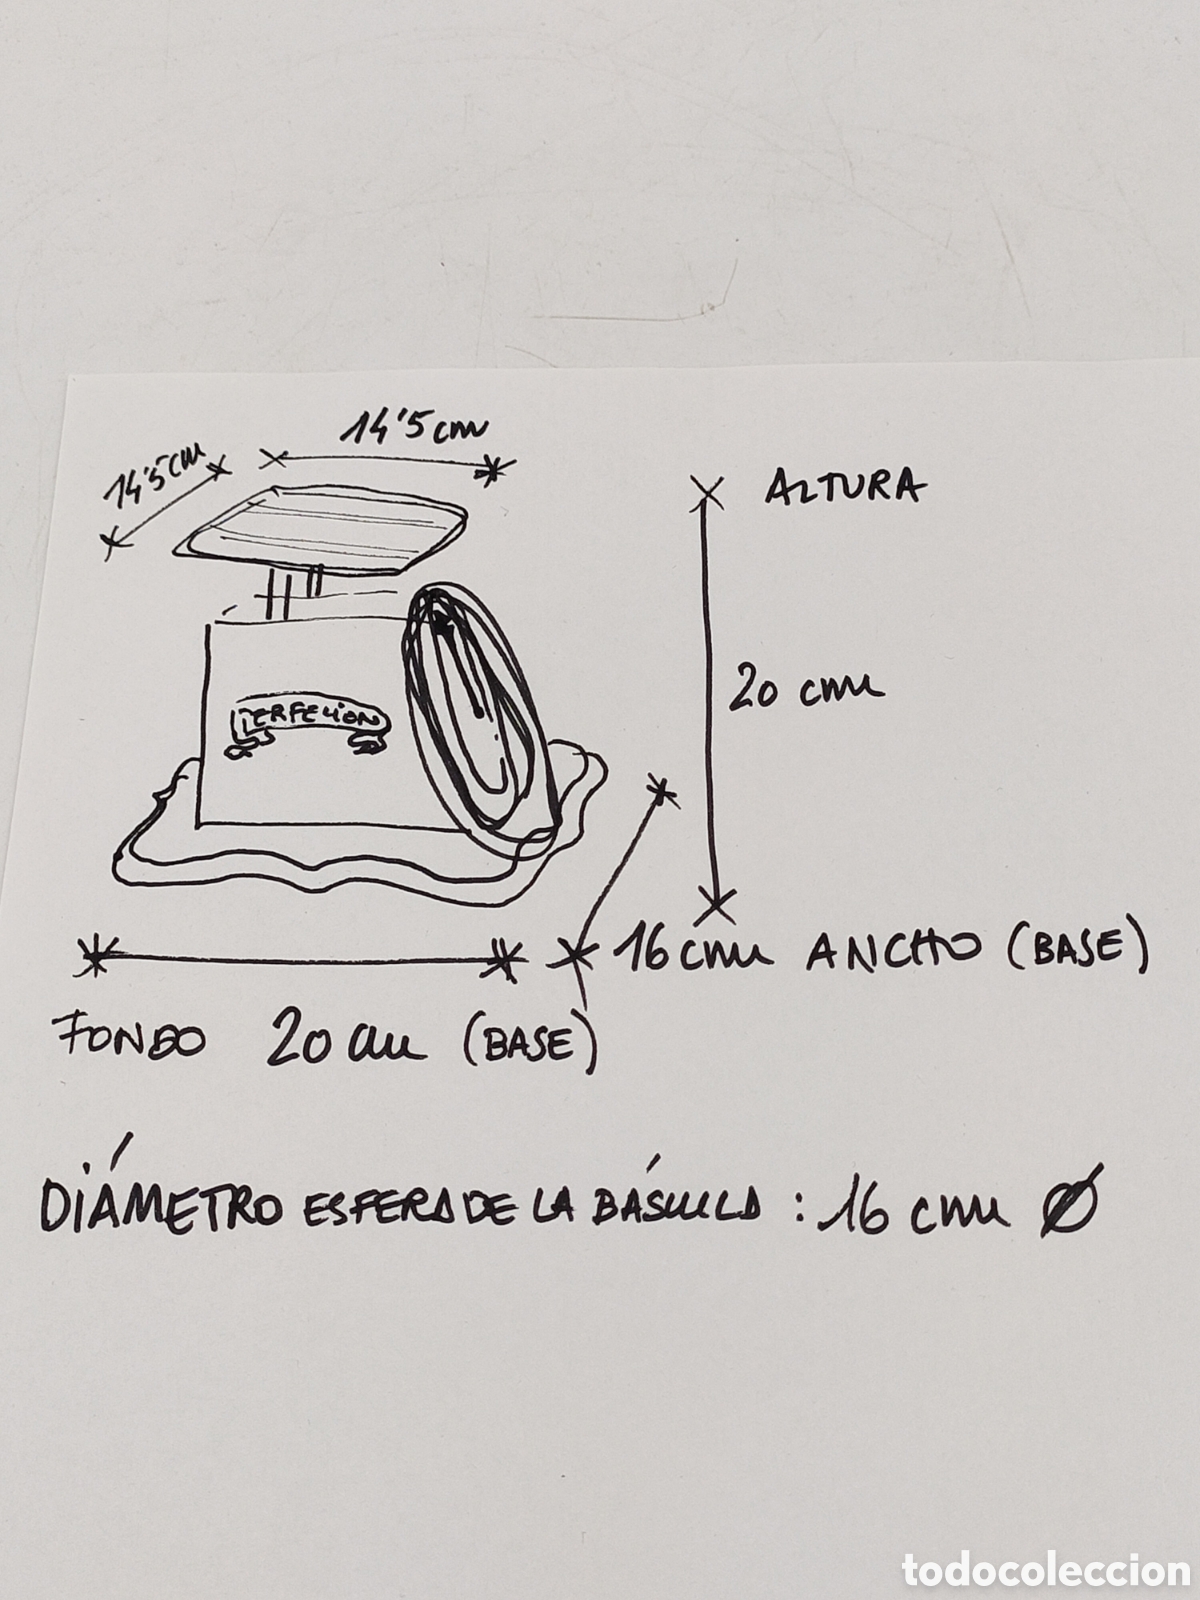 14'5 cm
14'5 cm
ALTURA
PERFECION
20 cm
16 cm ANCHO (BASE)
FONDO 20 cm (BASE)
DIÁMETRO ESFERA DE LA BÁSCULA : 16 cm Ø
todocoleccion